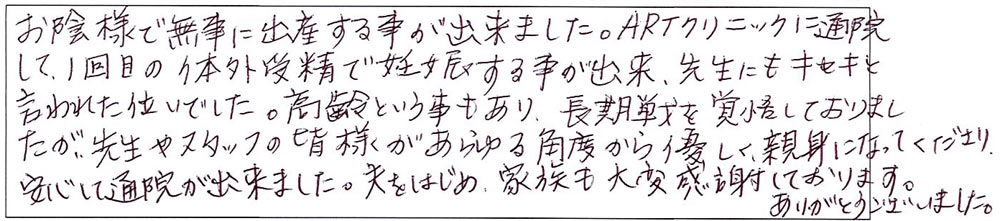 お陰様で無事に出産する事が出来ました。ARTクリニックに通院
して、1回目の体外受精で妊娠する事が出来、先生にもキセキと
言われた位いでした。高齢という事もあり、長期戦を覚悟しておりまし
たが、先生やスタッフの皆様があらゆる角度から優しく、親身になってくださり、
安心して通院が出来ました。夫をはじめ、家族も大変感謝しております。
ありがとうございました。